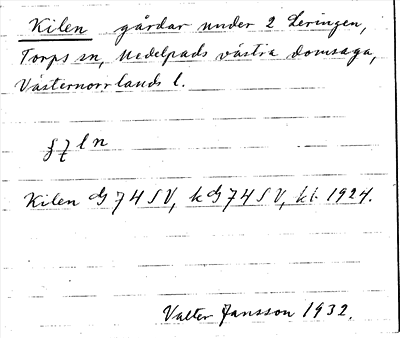 Kilen gårdar under 2 Leringen,
Torps sn, Medelpads västra domsaga,
Västernorrlands l.
Kilen GJ 74 SV, k GJ 74 SV, kl. 1924.
Valter Jansson 1932.